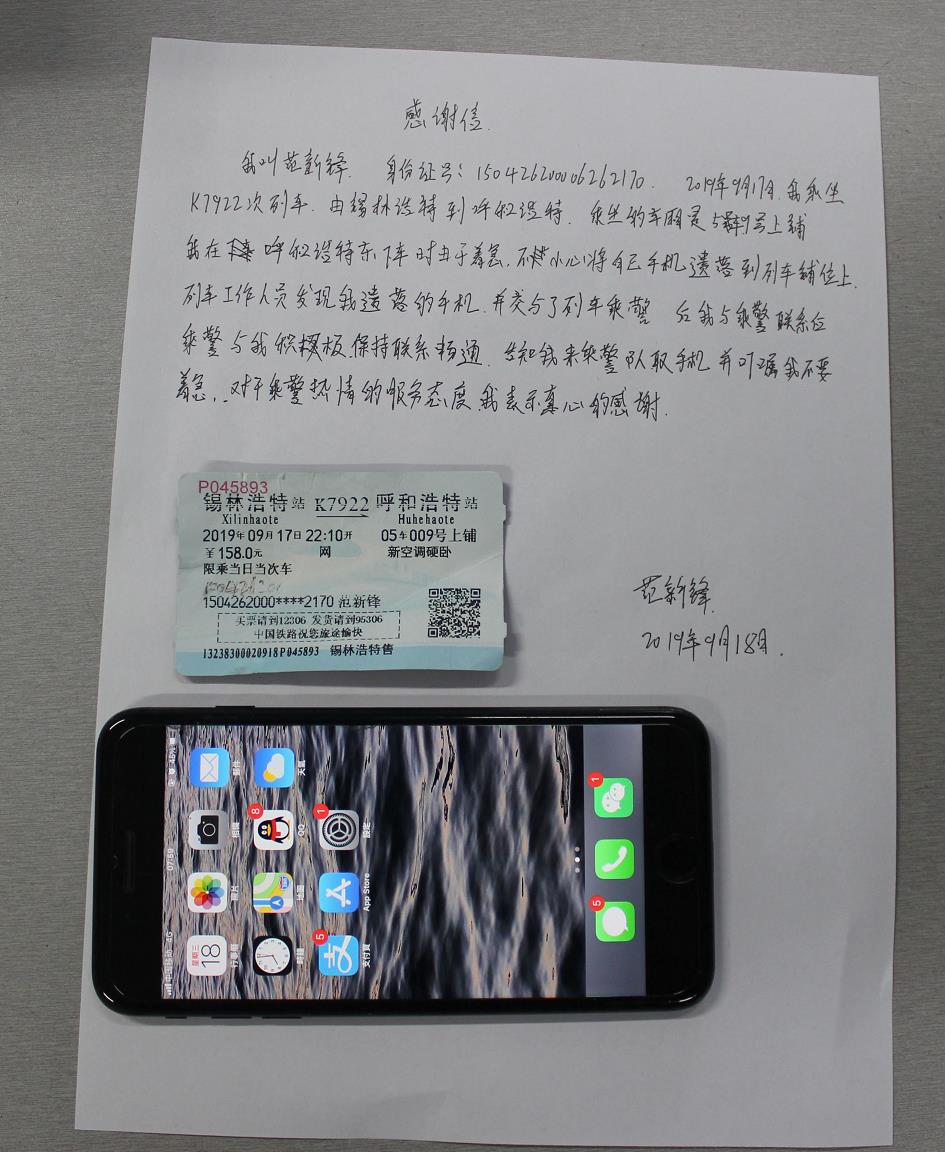 感谢信.
我叫范新锋. 身份证号:150426200006262170. 2019年9月17日.我乘坐
K7922次列车.由锡林浩特到呼和浩特.乘坐的车厢是5车9号上铺
我在 呼和浩特东下车时由于着急.不小心将自己手机遗落到列车铺位上.
列车工作人员发现我遗落的手机.并交与了列车乘警 后我与乘警联系后
乘警与我积极保持联系畅通.告知我来乘警队取手机并叮嘱我不要
着急,.对于乘警热情的服务态度.我表示真心的感谢.
范新锋.
2019年9月18日.
P045893
锡林浩特站 K7922 呼和浩特站
Xilinhaote Huhehaote
2019年09月17日22:10开 05车009号上铺
¥158.0元 网 新空调硬卧
限乘当日当次车
1504262000****2170 范新锋
买票请到12306 发货请到95306
中国铁路祝您旅途愉快
13238300020918P045893 锡林浩特售
中国移动 4G 07:59 46%
星期三
18
行事曆 照片 相機 郵件
時鐘 地圖 QQ 8 天氣
5 支付寶 App Store 1 設定
5 1